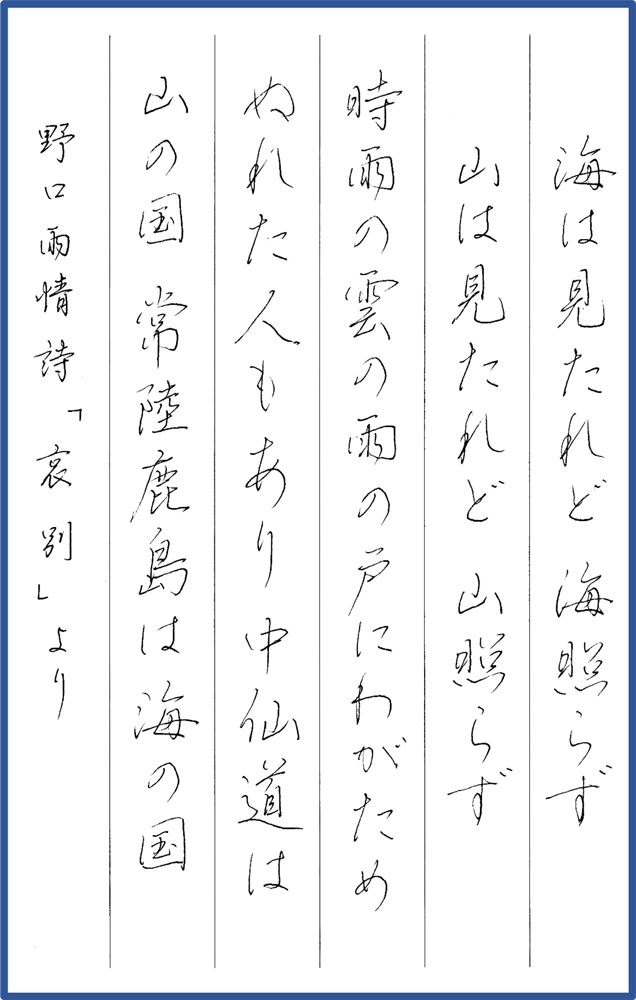 海は見たれど 海照らず
山は見たれど 山照らず
時雨の雲の雨の戸にわがため
ぬれた人もあり中仙道は
山の国 常陸鹿島は海の国
野口雨情詩「哀別」より